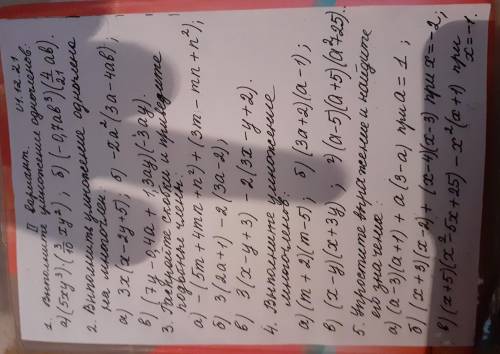 II вариант 14.12.21
1. Выполните умножение одночленов:
а) (5xy³)(3/10 xy²); б) (-0,7ab³)(4/21 ab).
2. Выполнить умножение одночлена
на многочлен.
а) 3x(x-2y+5); б) -2a²(3a-4ab);
в) (7,1-0,4a+1,3ay)(-3ay).
3. Раскройте скобки и приведите
подобные члены:
а) -(5m+4mn+n²)+(3m-mn+n²);
б) 3(2a+1)-2(3a-2);
в) 3(x-y+3)-2(3x-y+2).
4. Выполните умножение
многочленов:
а) (m+2)(m-5); б) (3a+2)(a-1);
в) (x-y)(x+3y); г) (a-5)(a+5)(a²+25).
5. Упростите выражение и найдите
его значение:
а) (a-3)(a+1)+a(3-a) при a=1;
б) (x+3)(x-2)+(x-4)(x-3) при x=-2;
в) (x+5)(x²-5x+25)-x²(x+1) при
x=-1.